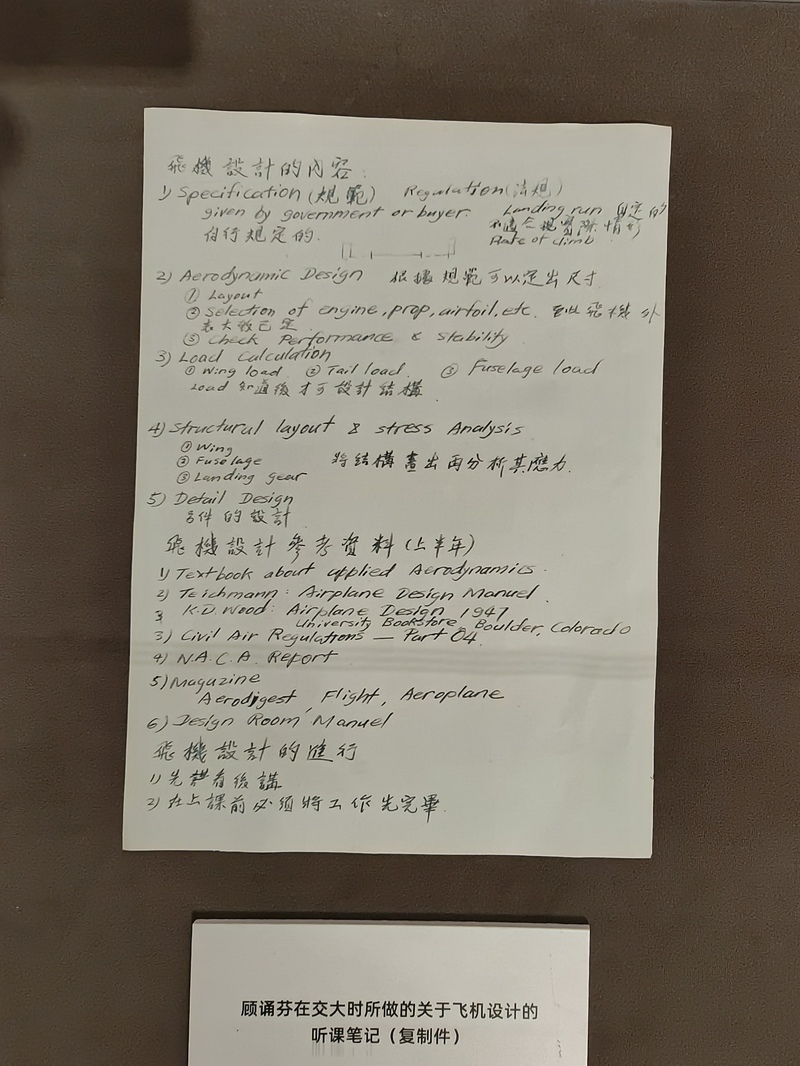 飛機設計的內容:
1) Specification (規範) Regulation (法規)
given by government or buyer. Landing run 自定的
自行規定的. 不適合現實際情形
Rate of climb
2) Aerodynamic Design 根據規範可以定出尺寸
① Layout
② Selection of engine, prop, airfoil, etc. 至此飛機外
表大致已定
③ Check Performance & Stability
3) Load Calculation
① Wing load ② Tail load. ③ Fuselage load
Load 知道後才可設計結構.
4) Structural layout & stress Analysis
① Wing
② Fuselage 將結構畫出再分析其應力.
③ Landing gear
5) Detail Design
另件的設計
飛機設計參考資料(上半年)
1) Textbook about applied Aerodynamics.
2) Teichmann: Airplane Design Manuel.
K.D. Wood: Airplane Design 1947
University Bookstore, Boulder, Colorado
3) Civil Air Regulations — Part 04.
4) N.A.C.A. Report
5) Magazine
Aerodigest, Flight, Aeroplane
6) Design Room Manuel
飛機設計的進行
1) 先看後講
2) 在上課前必須將工作先完畢.
顾诵芬在交大时所做的关于飞机设计的
听课笔记（复制件）